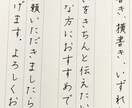 書き、横書き、いずれ
をきちんと伝えたい
な方におすすめで
頼いただきましたら
げます。よろしくお